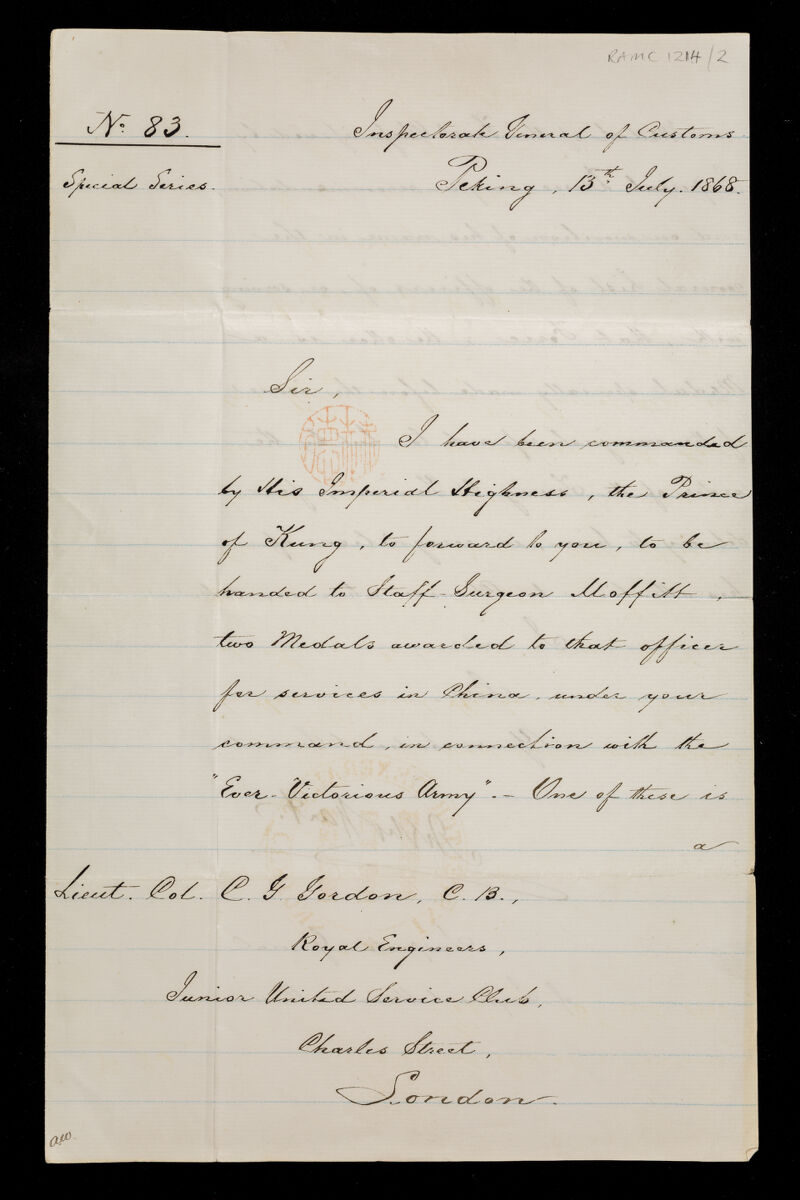 RAMC 1214/2
No. 83.
Special Series.
Inspectorate General of Customs
Peking, 13th July. 1868.
Sir,
I have been commanded
by His Imperial Highness, the Prince
of Kung, to forward to you, to be
handed to Staff-Surgeon Moffitt,
two Medals awarded to that officer
for services in China, under your
command, in connection with the
"Ever-Victorious Army".— One of these is
a
Lieut. Col. C. G. Gordon, C.B.,
Royal Engineers,
Junior United Service Club,
Charles Street,
London.